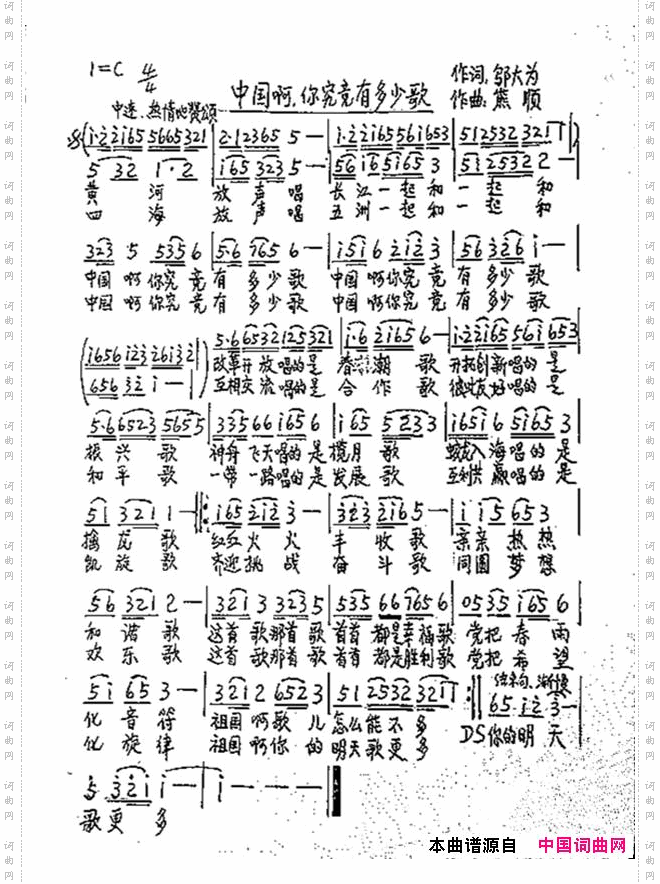 1=C 4/4
中国啊,你究竟有多少歌
作词:邬大为
作曲:熊 顺
中速、热情地赞颂
(1·2 2165 5665 321 | 2·12365 5 — | 1·22165 561653 | 512532 3211)
5 32 1·2 | 165 323 5 — | 56 165165 3 | 512532 2 —
黄 河 放 声 唱 长江一起和 一 起 和
四 海 放 声 唱 五洲一起和 一 起 和
323 5 535 6 | 5·6 765 6 — | 151 6 212 3 | 56 326 1 —
中国 啊 你究 竟 有 多少 歌 中国 啊你究 竟 有 多少 歌
中国 啊 你究 竟 有 多少 歌 中国 啊你究 竟 有 多少 歌
(1656 123 26132) 5·6 6532 125321 | 1·6 2165 6 — | 1·22165 561 653
(656 32 1 —)
改革开 放 唱的 是 春潮 歌 开拓创新唱的 是
互相交 流 唱的 是 合 作 歌 友好唱的 是
5·66523 5655 | 335 66 165 6 | 1 65 5233 | 1651 6 5165 3
振 兴 歌 神舟 飞天唱的 是 揽月 歌 蛟龙入 海 唱的 是
和 平 歌 一带 一路唱的 是 发展 歌 互利共 赢 唱的 是
51 321 1 — | 165 212 3 — | 323 2165 — | 1 15 653
擒 龙 歌 红红 火 火 丰 收 歌 亲亲 热 热
凯 旋 歌 齐迎 挑 战 奋 斗 歌 同圆 梦 想
56 321 2 — | 321 3 323 5 | 535 66 765 6 | 0535 165 6
和 谐 歌 这首 歌那首 歌 首首 都是幸福歌 党把 春 雨
欢 乐 歌 这首 歌那首 歌 首首 都是胜利歌 党把 希 望
结束句、渐慢
51 65 3 — | 3212 6523 | 51 2532 321 — :‖ 65 12 3 —
化 音 符 祖国 啊歌 儿 怎么能 不 多 DS你的明 天
化 旋 律 祖国 啊你 的 明天歌更 多
5 321 1 — | 1 — — —
歌更 多
本曲谱源自 中国词曲网